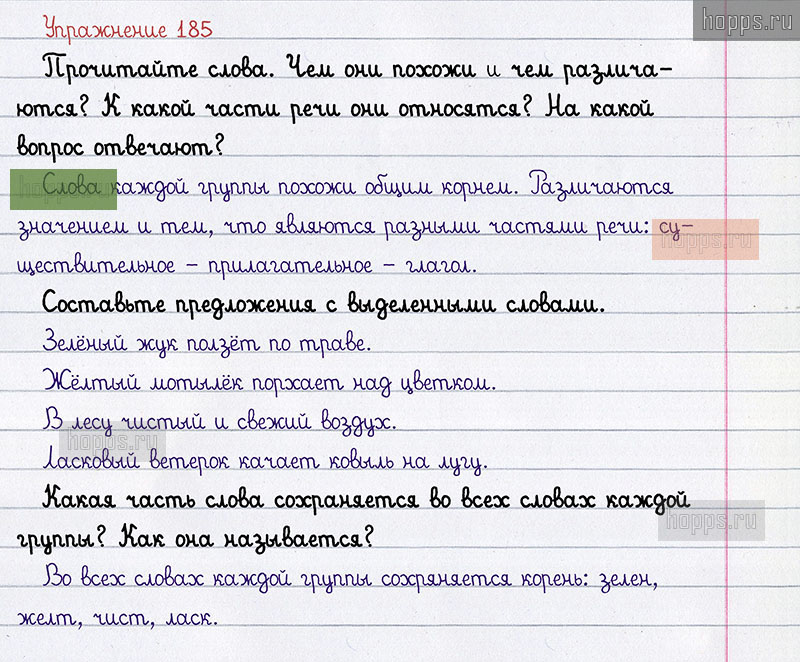 hopps.ru
Упражнение 185
Прочитайте слова. Чем они похожи и чем различа-
ются? К какой части речи они относятся? На какой
вопрос отвечают?
Слова каждой группы похожи общим корнем. Различаются
значением и тем, что являются разными частями речи: су-
ществительное – прилагательное – глагол.
Составьте предложения с выделенными словами.
Зелёный жук ползёт по траве.
Жёлтый мотылёк порхает над цветком.
В лесу чистый и свежий воздух.
Ласковый ветерок качает ковыль на лугу.
Какая часть слова сохраняется во всех словах каждой
группы? Как она называется?
Во всех словах каждой группы сохряняется корень: зелен,
желт, чист, ласк.
hopps.ru
hopps.ru
hopps.ru
hopps.ru